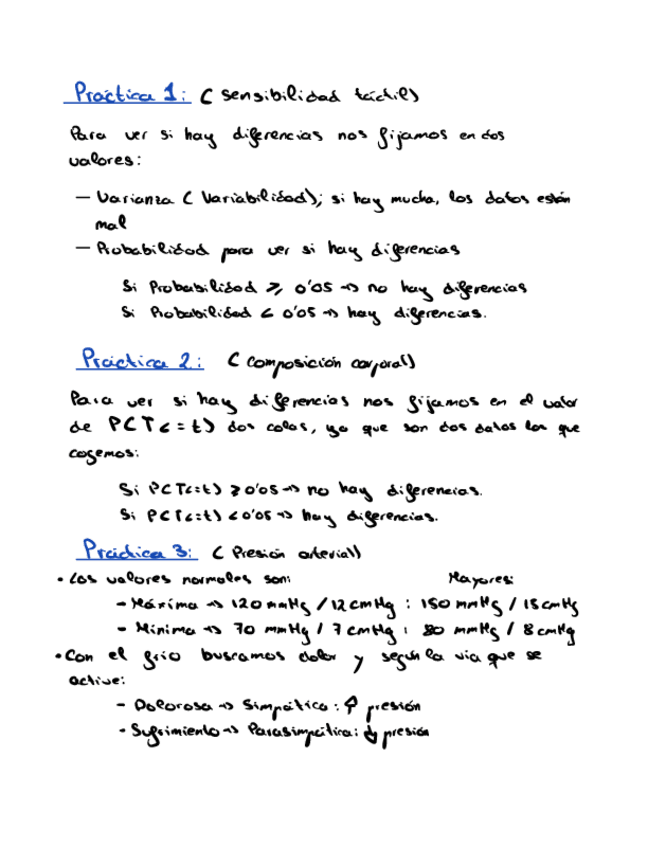 Práctica 1: (sensibilidad táctil)
Para ver si hay diferencias nos fijamos en dos
valores:
— Varianza (Variabilidad); si hay mucha, los datos están
mal
— Probabilidad para ver si hay diferencias
Si Probabilidad ≥ 0'05 → no hay diferencias
Si Probabilidad < 0'05 → hay diferencias.
Práctica 2: (composición corporal)
Para ver si hay diferencias nos fijamos en el valor
de P(T<=t) dos colas, ya que son dos datos los que
cogemos:
Si P(T<=t) ≥ 0'05 → no hay diferencias.
Si P(T<=t) < 0'05 → hay diferencias.
Práctica 3: (Presión arterial)
• Los valores normales son: Mayores:
- Máxima → 120 mmHg / 12 cmHg : 150 mmHg / 15 cmHg
- Mínima → 70 mmHg / 7 cmHg : 80 mmHg / 8 cmHg
• Con el frío buscamos dolor y según la vía que se
active:
- Dolorosa → Simpática: ↑ presión
- Sufrimiento → Parasimpática: ↓ presión